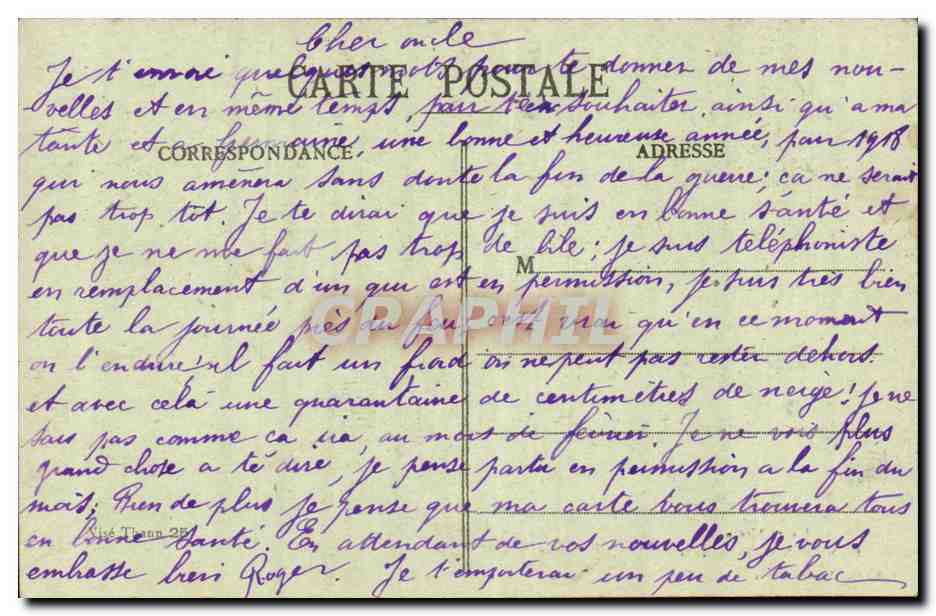 Cher oncle
CARTE POSTALE
Je t'envoi quelques mots pour te donner de mes nou-
velles et en même temps, pour t'en souhaiter ainsi qu'a ma
tante et a, une bonne et heureuse année, pour 1918
CORRESPONDANCE ADRESSE
qui nous amènera sans doute la fin de la guerre; ça ne serait
pas trop tôt. Je te dirai que je suis en bonne santé et
que je ne me fait pas trop de bile; je suis téléphoniste
M
en remplacement d'un qui est en permission, je suis très bien
toute la journée près du feu, c'est vrai qu'en ce moment
CPAPHIL
on l'endure; il fait un froid on ne peut pas rester dehors
et avec cela une quarantaine de centimètres de neige! je ne
sais pas comme ça ira, au mois de février. Je ne vois plus
grand chose a te dire, je pense partir en permission a la fin du
mois; Rien de plus je pense que ma carte vous trouvera tous
Visé Thann 25
en bonne santé. En attendant de vos nouvelles, je vous
embrasse bien Roger. Je t'emporterai un peu de tabac